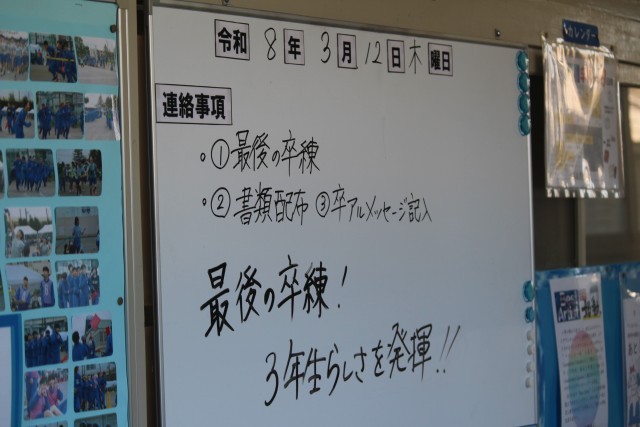 令和 8 年 3 月 12 日 木 曜日
連絡事項
・①最後の卒練
・②書類配布 ③卒アルメッセージ記入
最後の卒練!
3年生らしさを発揮!!
カレンダー